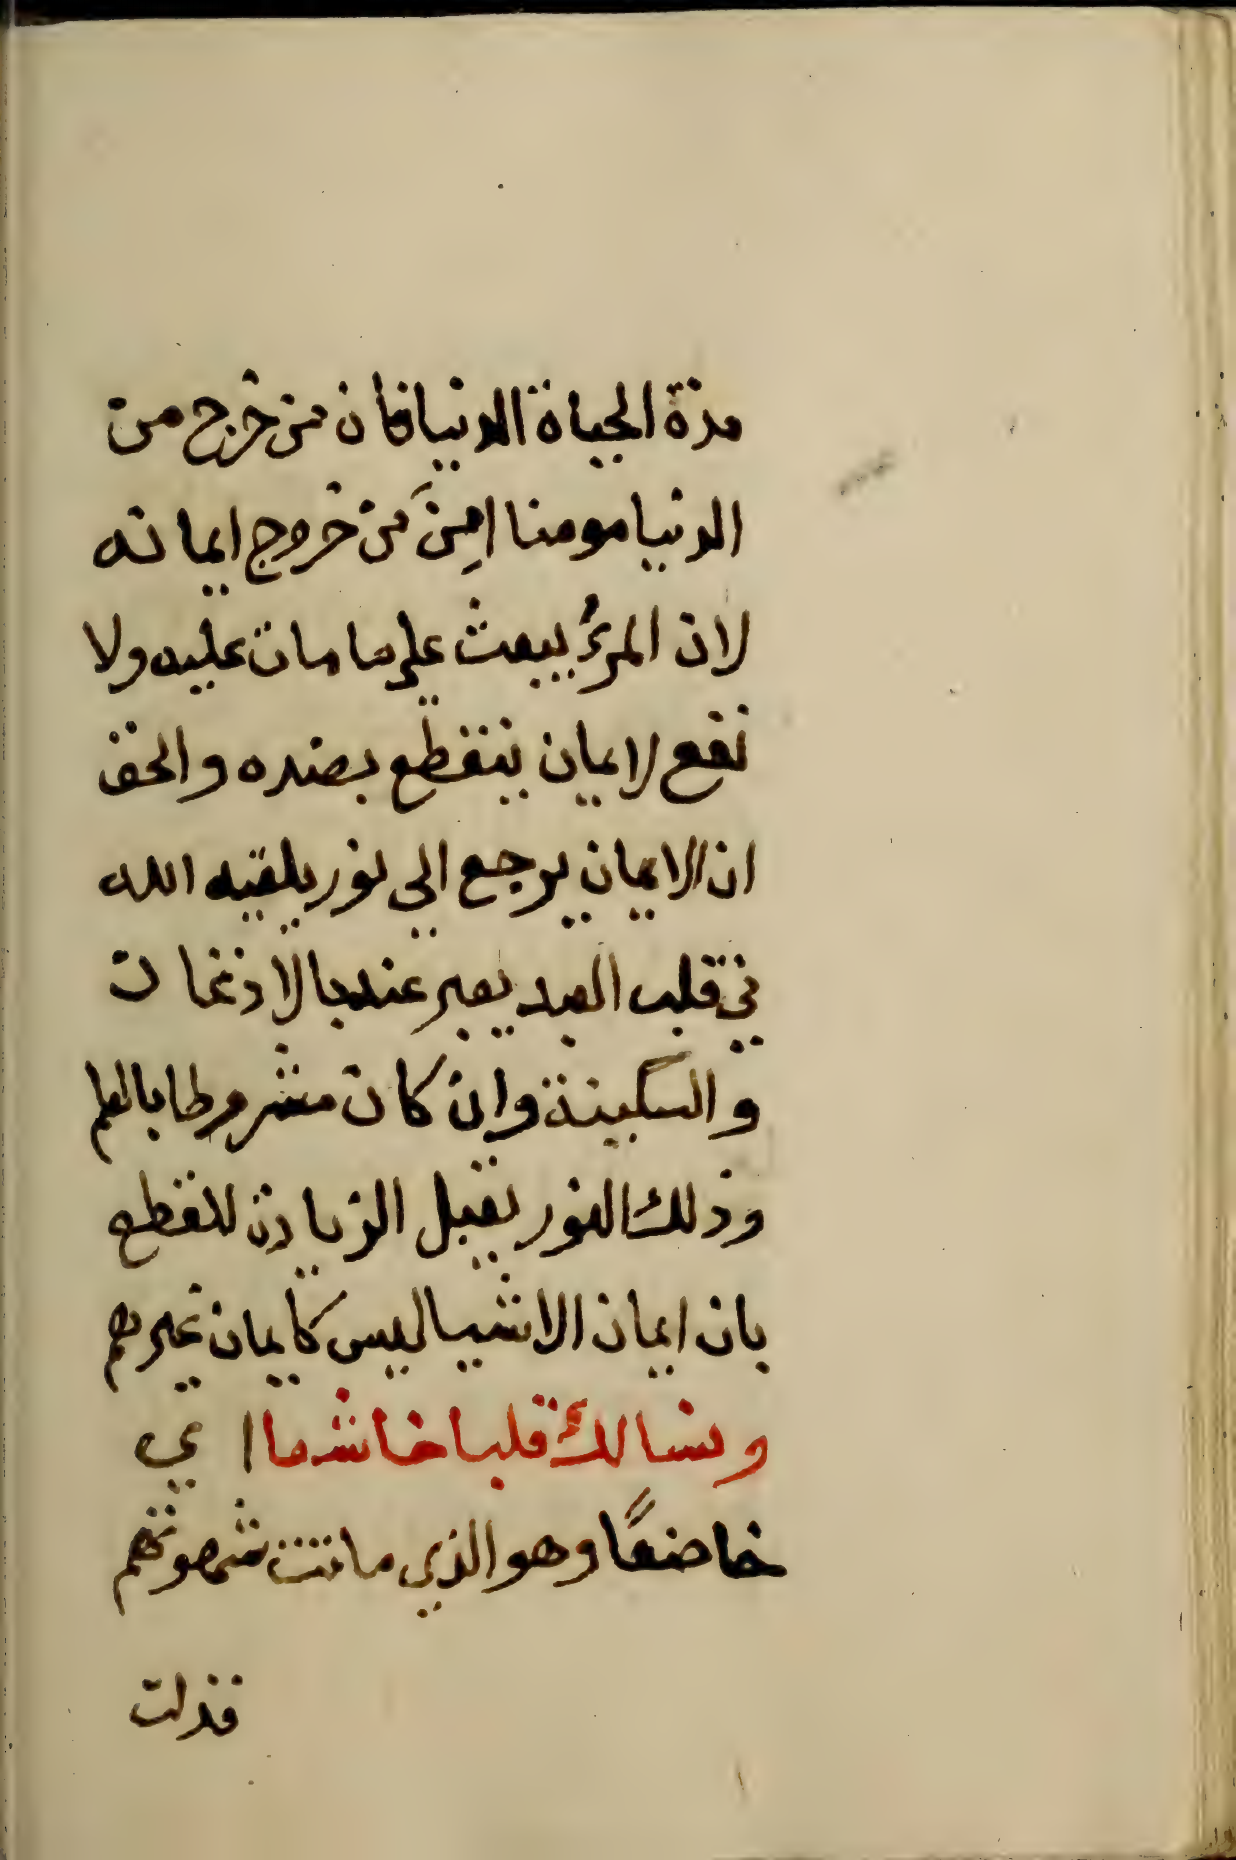 مدة الحياة الدنيا فان من خرج من
الدنيا مومنا امِنَ من خروج ايمانه
لان المرءُ يبعث على ما مات عليه ولا
نفع لايمان ينقطع بضده والحق
ان الايمان يرجع الى نور يلقيه الله
في قلب العبد يعبر عنه بالاذعان
والسكينة وان كان مشروطا بالعلم
وذلك النور يقبل الزيادة للقطع
بان ايمان الانبيا ليس كايمان غيرهم
ونسالك قلبا خاشعا اي
خاضعًا وهو الذي ماتت شهوتهم
فذلت